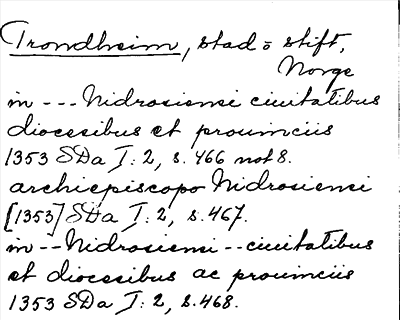 Trondheim, stad o stift,
Norge
in --- Nidrosiensi ciuitatibus
diocesibus et prouinciis
1353 SDa I: 2, s. 466 not 8.
archiepiscopo Nidrosiensi
[1353] SDa I: 2, s. 467.
in -- Nidrosiensi -- ciuitatibus
et diocesibus ac prouinciis
1353 SDa I: 2, s. 468.